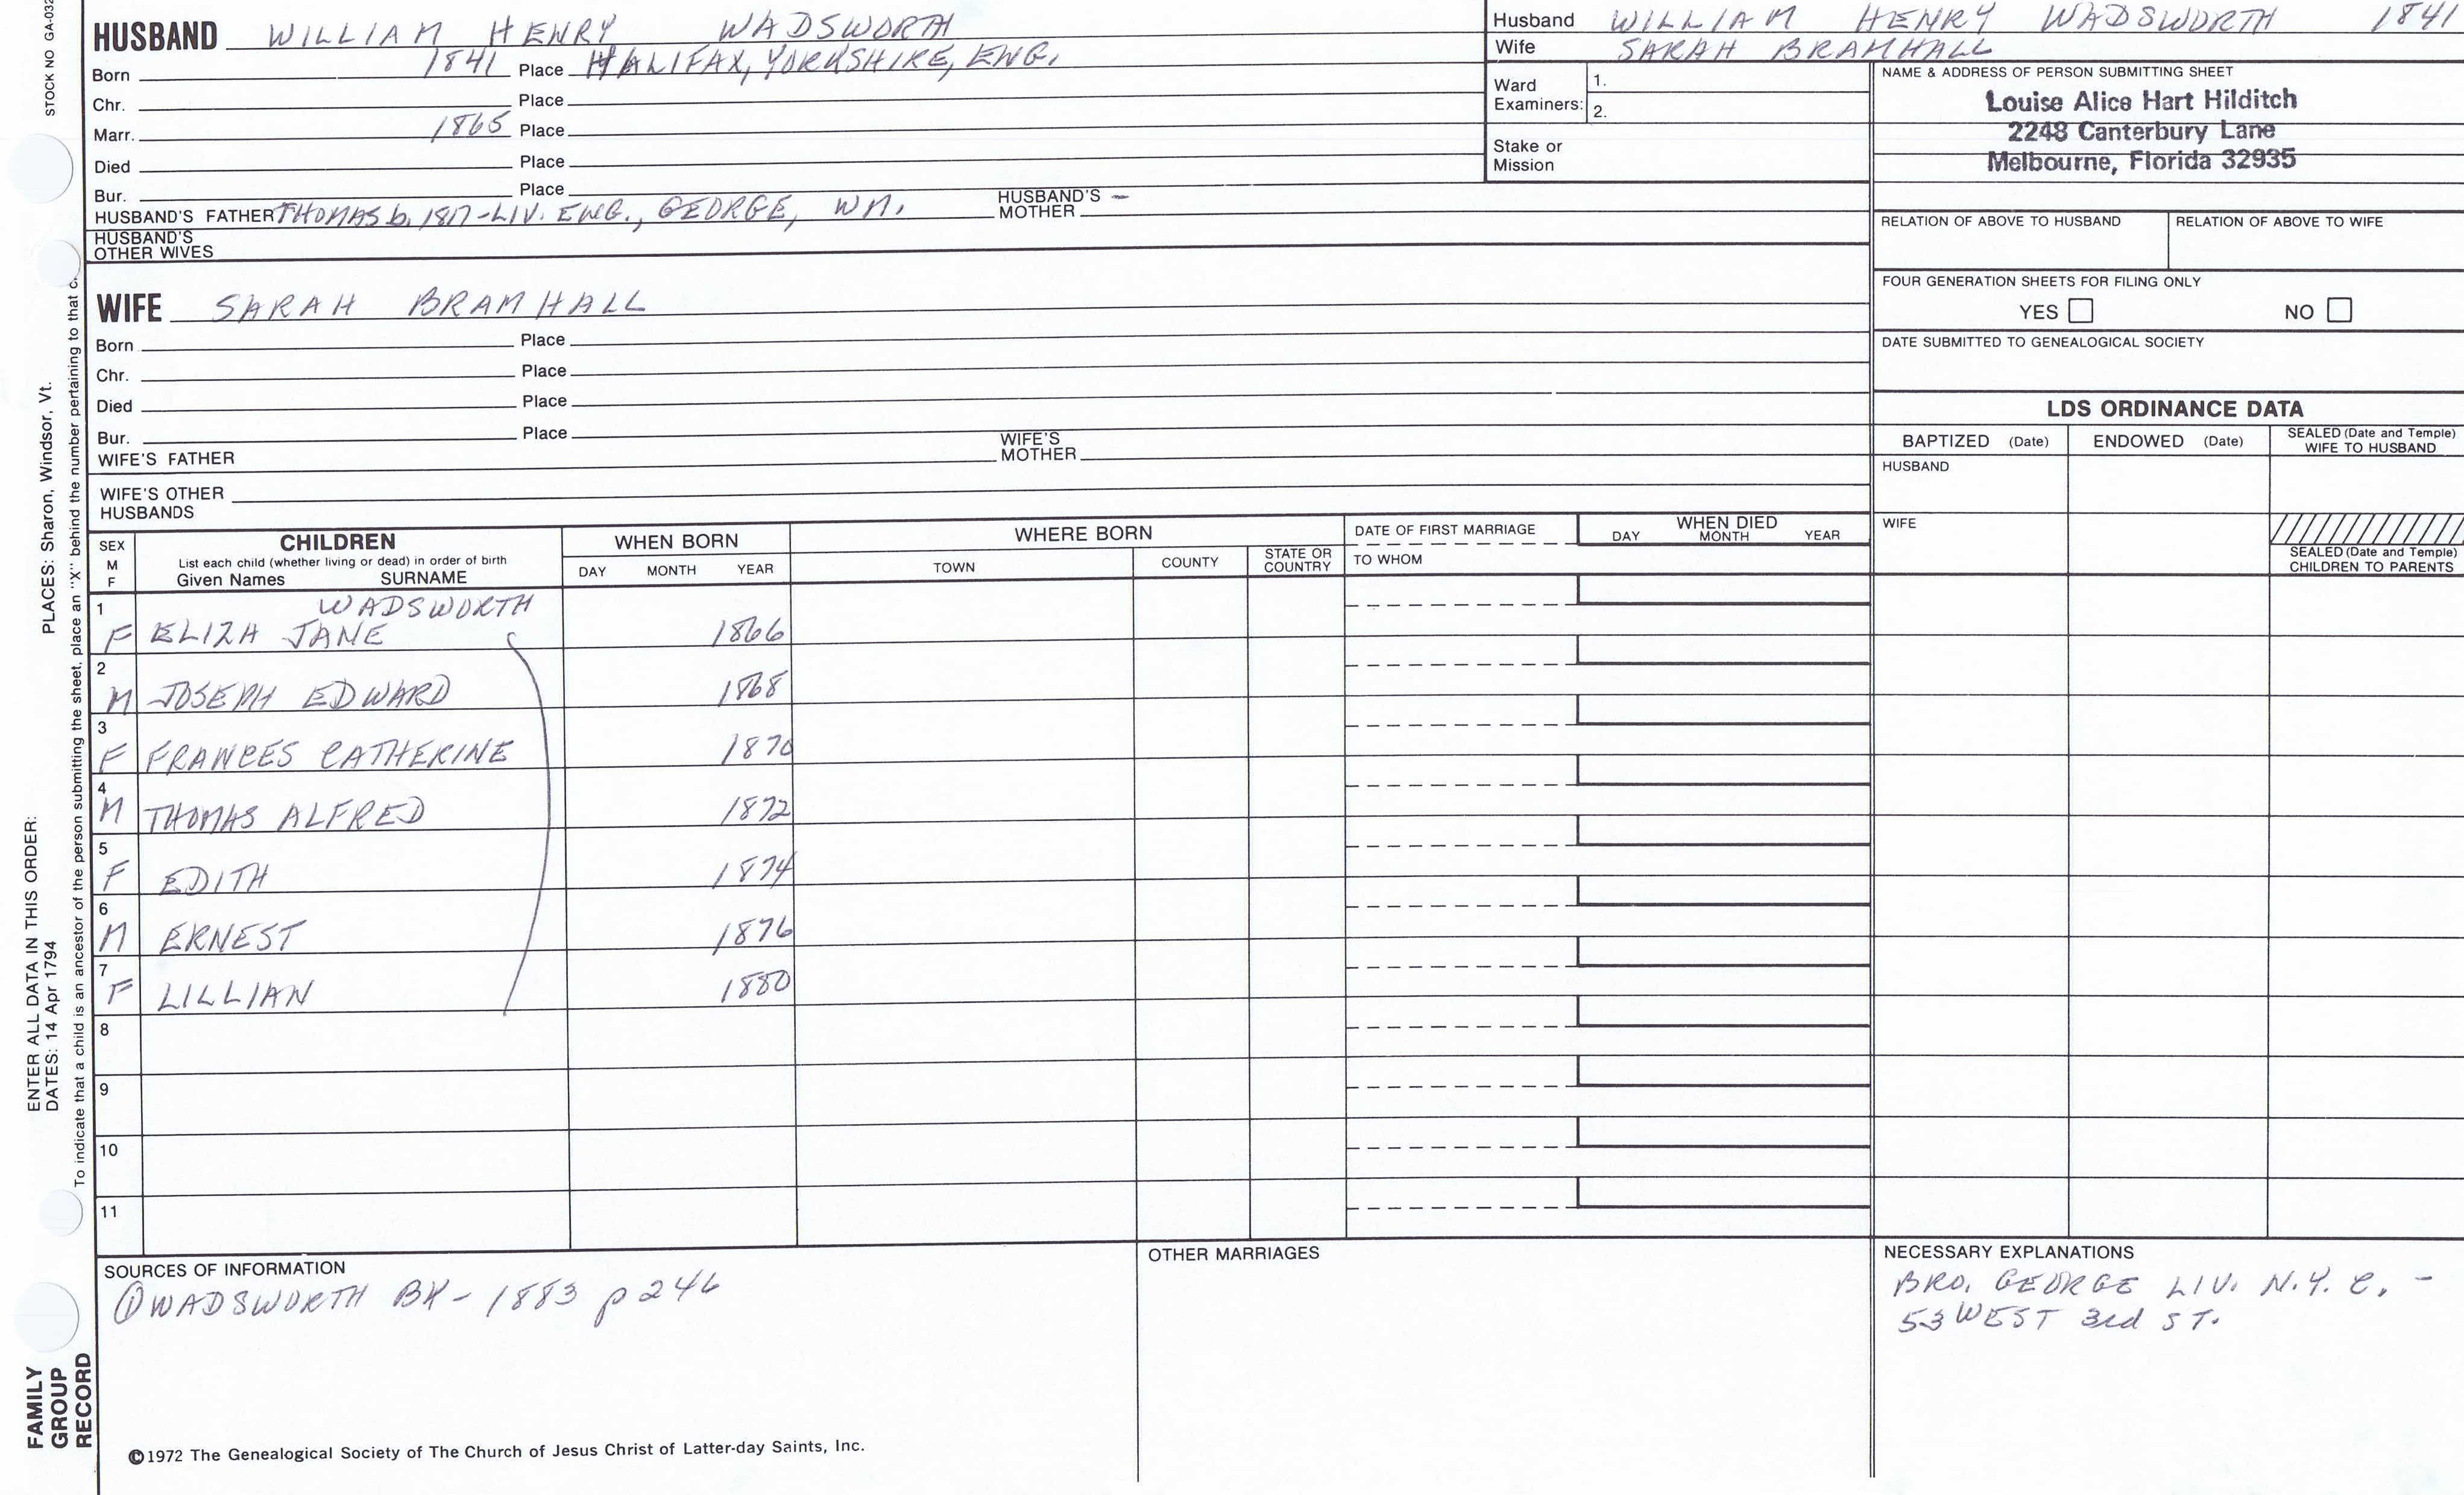 STOCK NO GA-032
HUSBAND WILLIAM HENRY WADSWORTH
Born 1841 Place HALIFAX, YORKSHIRE, ENG.
Chr. Place
Marr. 1865 Place
Died Place
Bur. Place
HUSBAND'S FATHER THOMAS b. 1817-LIV. ENG., GEORGE, WM. HUSBAND'S MOTHER -
HUSBAND'S OTHER WIVES
WIFE SARAH BRAMHALL
Born Place
Chr. Place
Died Place
Bur. Place
WIFE'S FATHER WIFE'S MOTHER
WIFE'S OTHER HUSBANDS
Husband WILLIAM HENRY WADSWORTH 1841
Wife SARAH BRAMHALL
Ward Examiners: 1.
2.
Stake or Mission
NAME & ADDRESS OF PERSON SUBMITTING SHEET
Louise Alice Hart Hilditch
2248 Canterbury Lane
Melbourne, Florida 32935
RELATION OF ABOVE TO HUSBAND RELATION OF ABOVE TO WIFE
FOUR GENERATION SHEETS FOR FILING ONLY
YES NO
DATE SUBMITTED TO GENEALOGICAL SOCIETY
LDS ORDINANCE DATA
BAPTIZED (Date) ENDOWED (Date) SEALED (Date and Temple) WIFE TO HUSBAND
HUSBAND
WIFE
SEALED (Date and Temple) CHILDREN TO PARENTS
SEX M F CHILDREN WHEN BORN WHERE BORN DATE OF FIRST MARRIAGE WHEN DIED
List each child (whether living or dead) in order of birth
Given Names SURNAME DAY MONTH YEAR TOWN COUNTY STATE OR COUNTRY TO WHOM DAY MONTH YEAR
1 WADSWORTH
F ELIZA JANE 1866
2
M JOSEPH EDWARD 1868
3
F FRANCES CATHERINE 1870
4
M THOMAS ALFRED 1872
5
F EDITH 1874
6
M ERNEST 1876
7
F LILLIAN 1880
8
9
10
11
SOURCES OF INFORMATION
① WADSWORTH BK - 1883 p 246
OTHER MARRIAGES
NECESSARY EXPLANATIONS
BRO. GEORGE LIV. N.Y.C. -
53 WEST 3rd ST.
©1972 The Genealogical Society of The Church of Jesus Christ of Latter-day Saints, Inc.
FAMILY
GROUP
RECORD
ENTER ALL DATA IN THIS ORDER:
DATES: 14 Apr 1794 PLACES: Sharon, Windsor, Vt.
To indicate that a child is an ancestor of the person submitting the sheet, place an "X" behind the number pertaining to that c.